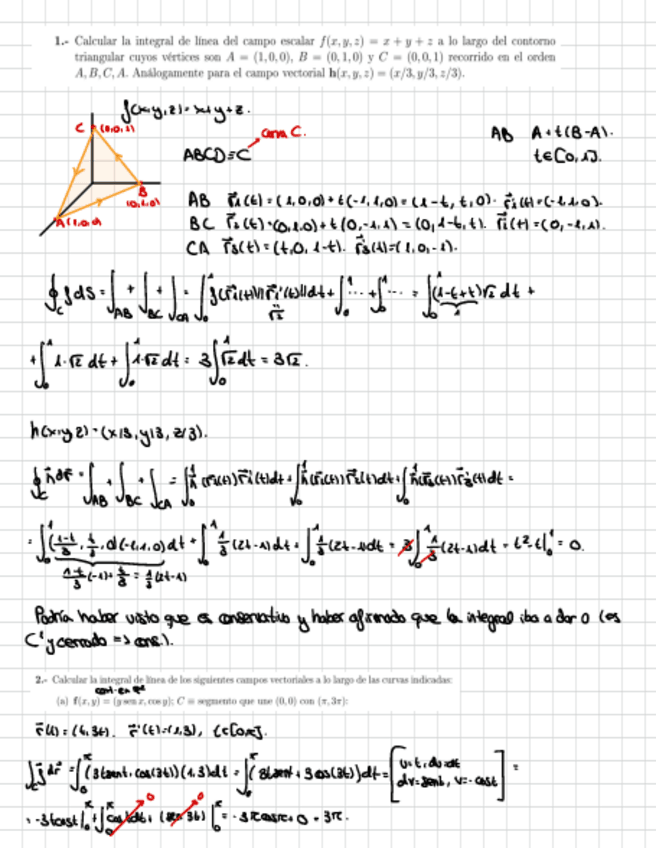 1.- Calcular la integral de línea del campo escalar f(x, y, z) = x + y + z a lo largo del contorno
triangular cuyos vértices son A = (1,0,0), B = (0,1,0) y C = (0,0,1) recorrido en el orden
A, B, C, A. Análogamente para el campo vectorial h(x, y, z) = (x/3, y/3, z/3).
f(x,y,z) = x+y+z.
C (0,0,1)
B (0,1,0)
A(1,0,0)
curva C.
ABCD ≡ C
AB A+t(B-A).
t∈[0,1].
AB r⃗₁(t) = (1,0,0)+t(-1,1,0) = (1-t, t, 0). r⃗₁'(t)=(-1,1,0).
BC r⃗₂(t)=(0,1,0)+t(0,-1,1) = (0,1-t,t). r⃗₂'(t)=(0,-1,1).
CA r⃗₃(t)=(t,0,1-t). r⃗₃'(t)=(1,0,-1).
∮_C f ds = ∫_AB + ∫_BC + ∫_CA = ∫₀¹ f(r⃗₁(t))‖r⃗₁'(t)‖dt + ∫₀¹ ... + ∫₀¹ ... = ∫₀¹ (1-t+t)√2 dt +
√2
1
+ ∫₀¹ 1·√2 dt + ∫₀¹ 1·√2 dt = 3∫₀¹ √2 dt = 3√2.
h(x,y,z) = (x/3, y/3, z/3).
∮_C h⃗ dr⃗ = ∫_AB + ∫_BC + ∫_CA = ∫₀¹ h⃗(r⃗₁(t)) r⃗₁'(t)dt + ∫₀¹ h⃗(r⃗₂(t)) r⃗₂'(t)dt + ∫₀¹ h⃗(r⃗₃(t)) r⃗₃'(t)dt =
= ∫₀¹ ((1-t)/3, t/3, 0)(-1,1,0)dt + ∫₀¹ 1/3 (2t-1)dt + ∫₀¹ 1/3 (2t-1)dt = 3∫₀¹ 1/3 (2t-1)dt = t²-t|₀¹ = 0.
(1-t)/3 (-1) + t/3 = 1/3 (2t-1)
Podría haber visto que es conservativo y haber afirmado que la integral iba a dar 0 (es
C¹ y cerrado => cons.).
2.- Calcular la integral de línea de los siguientes campos vectoriales a lo largo de las curvas indicadas:
cont. en ℝ²
(a) f(x, y) = (y sen x, cos y); C ≡ segmento que une (0,0) con (π, 3π):
r⃗(t) = (t, 3t). r⃗'(t)=(1,3), t∈[0,π].
∫_C f⃗ dr⃗ = ∫₀^π (3t sent, cos(3t))(1,3)dt = ∫₀^π (3t sent + 3cos(3t))dt = [u=t, du=dt
dv=sent, v=-cost] =
= -3t cost|₀^π + ∫₀^π cost dt + (sen 3t)|₀^π = -3π cosπ + 0 = 3π.
0
0